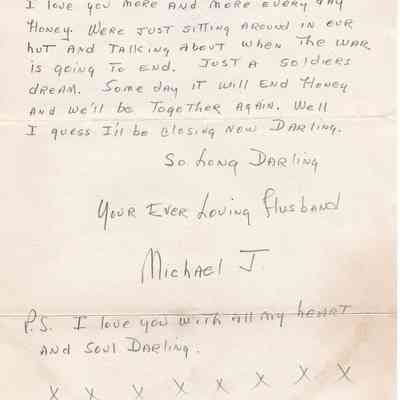 I love you more and more every day
Honey. Were just sitting around in our
hut and talking about when the war
is going to end. Just a soldiers
dream. Some day it will end Honey
and we'll be together again. Well
I guess I'll be closing now Darling.
So Long Darling
Your Ever Loving Husband
Michael J.
P.S. I love you with all my heart
and soul Darling.
x x x x x x x x